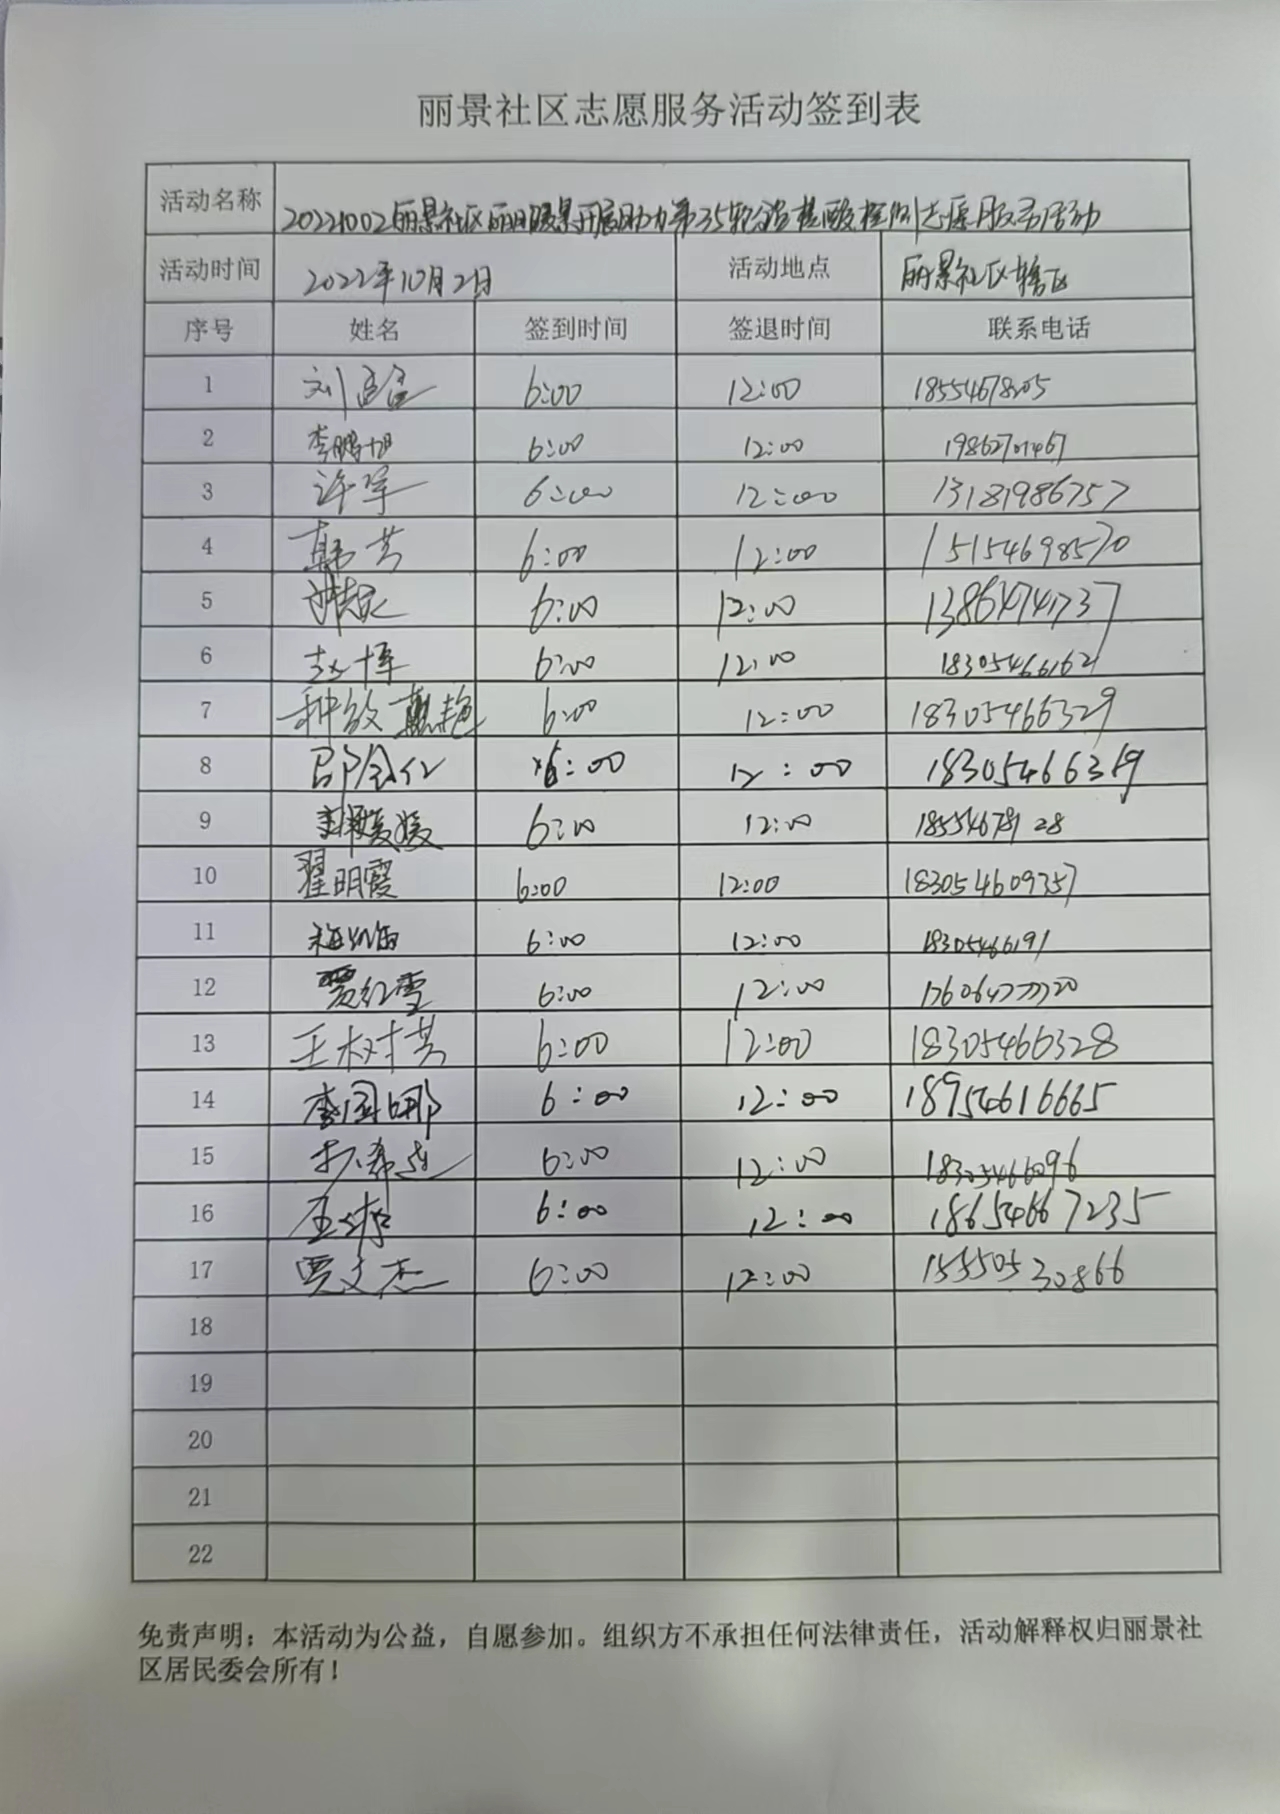 丽景社区志愿服务活动签到表
活动名称 20221002丽景社区丽日暖景开展助力第35轮全员核酸检测志愿服务活动
活动时间 2022年10月2日 活动地点 丽景社区辖区
序号 姓名 签到时间 签退时间 联系电话
1 刘 6:00 12:00 18554678205
2 李鹏旭 6:00 12:00 19862701467
3 许军 6:00 12:00 13181986757
4 韩芳 6:00 12:00 15154698570
5 6:00 12:00 13864741737
6 赵博 6:00 12:00 18305466162
7 6:00 12:00 18305466329
8 邵会仁 6:00 12:00 18305466319
9 韩媛媛 6:00 12:00 18554678128
10 翟明霞 6:00 12:00 183054609357
11 6:00 12:00 18305466191
12 贾红雪 6:00 12:00
13 王树芳 6:00 12:00 18305466328
14 李国娜 6:00 12:00 18954616665
15 6:00 12:00 18305466096
16 王娟 6:00 12:00 18654667235
17 贾文杰 6:00 12:00 15550530866
18
19
20
21
22
免责声明：本活动为公益，自愿参加。组织方不承担任何法律责任，活动解释权归丽景社
区居民委会所有！